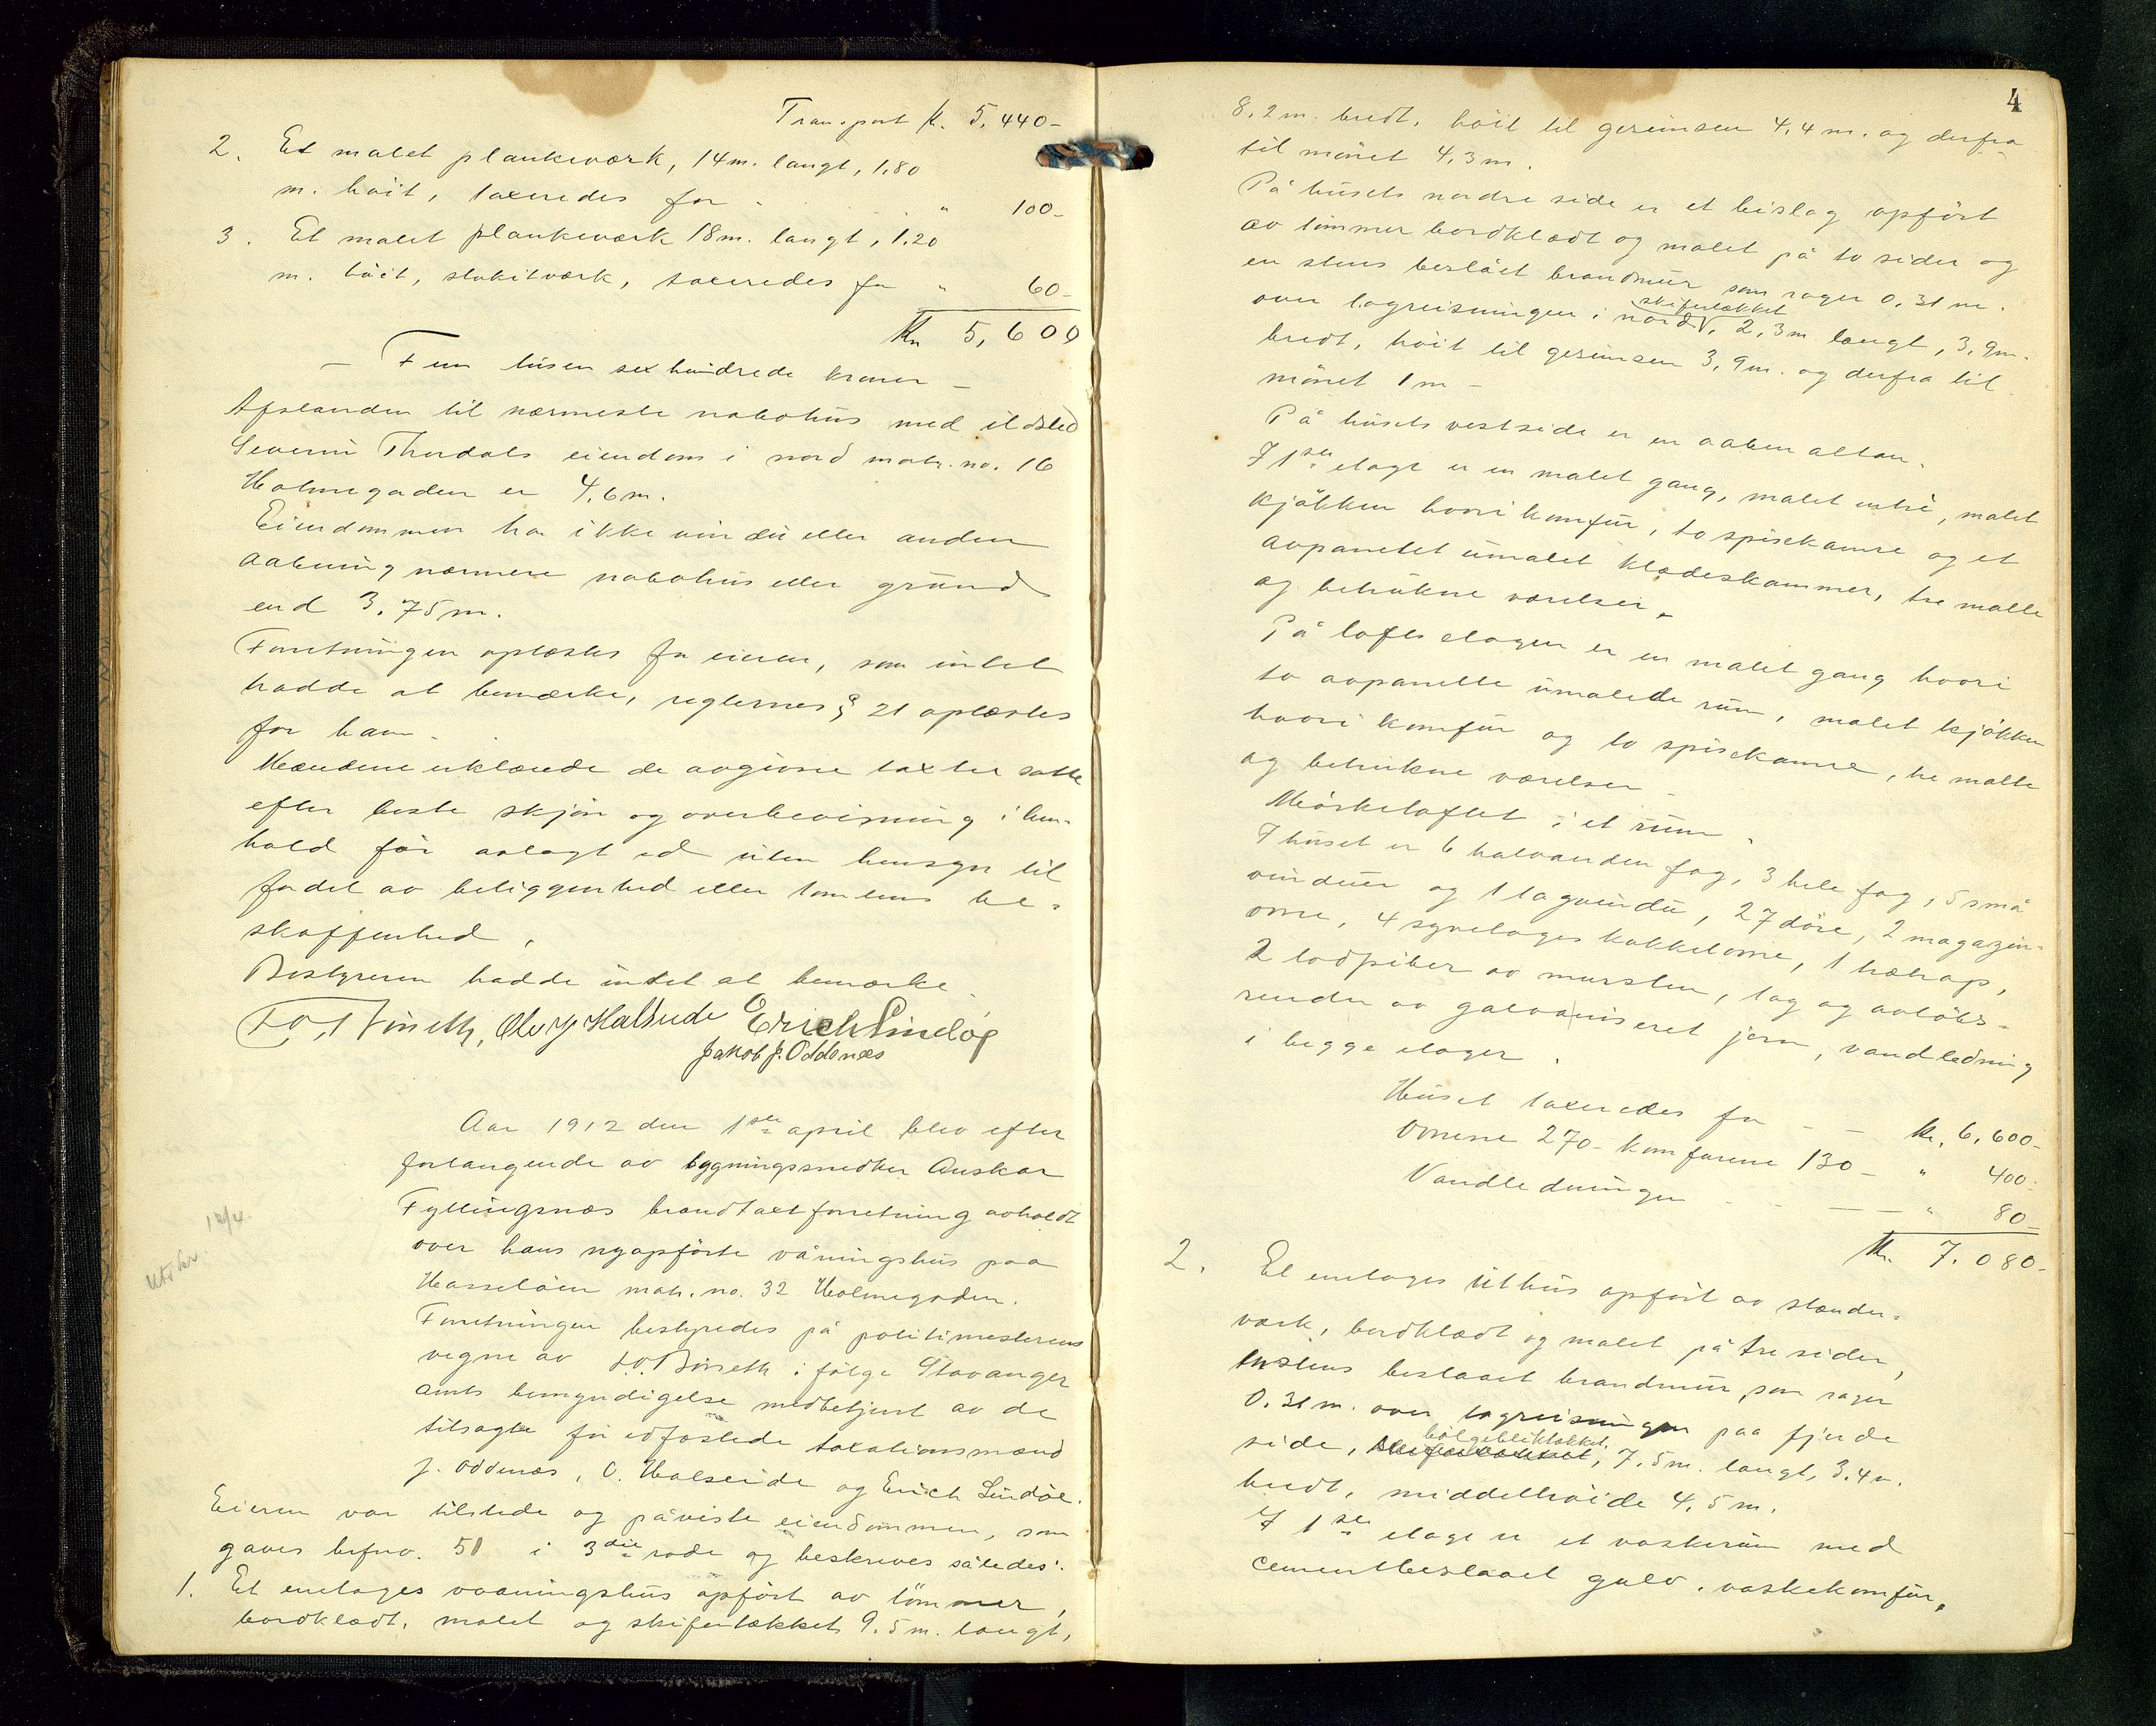 Transport k. 5,440-
2. Et malet plankeværk, 14 m. langt, 1,80
m. høit, taxeredes for " 100-
3. Et malet plankeværk 18 m. langt, 1.20
m. høit, stakitværk, taxeredes for " 60-
Kr 5,600
- Fem tusen sex hundrede kroner -
Afstanden til nærmeste nabohus med ildsted
Severin Thudals eiendom i nord matr. no. 16
Holmegaden er 4,6 m.
Eiendommen har ikke vindu eller anden
aabning nærmere nabohus eller grund
end 3.75 m.
Forretningen oplæstes for eieren, som intet
hadde at bemærke, reglernes § 21 oplæstes
for ham.
Mændene erklærede de avgivne taxter satte
efter beste skjøn og overbevisning i hen-
hold før avlagt ed uten hensyn til
fordel av beliggenhed eller tomtens be-
skaffenhed.
Bestyreren hadde intet at bemærke.
Ole H Halseide Erich Lindøe
Jakob J. Oddenæs
Aar 1912 den 1ste april blev efter
forlangende av bygningssnedker Anskar
Fyllingsnæs brandtaxtforretning avholdt
over hans nyopførte våningshus paa
Hasseløen matr. no. 32 Holmegaden.
Forretningen bestyredes på politimesterens
vegne av i følge Stavanger
amts bemyndigelse medbetjent av de
tilsagte før edfæstede taxationsmænd
J. Oddenæs, O. Halseide og Erich Lindøe.
Eieren var tilstede og påviste eiendommen, som
gaves brfno. 51 i 3die rode og beskrives således:
1. Et enetages vaaningshus opført av tømmer,
bordklædt, malet og skifertækket 9.5 m. langt,
12/4.
4
8,2 m. bredt, høit til gesimsen 4,4 m. og derfra
til mønet 4,3 m.
På husets nordre side er et bislag opført
av tømmer bordklædt og malet på to sider og
en stens beslået brandmur som rager 0,31 m.
over tagreisningen i nord, skifertækket 2,3 m langt, 3,9 m.
bredt, høit til gesimsen 3,9 m. og derfra til
mønet 1 m -
På husets vestside er en aaben altan.
I 1ste etage er en malet gang, malet entré, malet
kjøkken hvori komfur, to spisekamre og et
avpanelet umalet klædeskammer, tre malte
og betrukne værelser.
På loftsetagen er en malet gang hvori
to avpanelte umalede rum, malet kjøkken
hvori komfur og to spisekamre, tre malte
og betrukne værelser -
Mørkeloftet i et rum.
I huset er 6 halvanden fag, 3 hele fag, 5 små
vinduer og 1 tagvindu, 27 døre, 2 magazin-
ovne, 4 syvetages kakkelovne, 1 hætrap,
2 lodpiber av mursten, tag og avløbs-
render av galvaniseret jern, vandledning
i begge etager.
Huset taxeredes for - - kr. 6,600-
Ovnene 270- komfurene 130- " 400-
Vandledningen - - - " 80-
Kr. 7.080-
2. Et enetages uthus opført av stender-
værk, bordklædt og malet på tre sider,
enstens beslaaet brandmur, som rager
0.31 m. over tagreisningen paa fjerde
side, bølgebliktækket, 7.5 m. langt, 3.4 m.
bredt, middelhøide 4,5 m.
I 1ste etage er et vaskerum med
cementbeslaaet gulv, vaskekomfur,